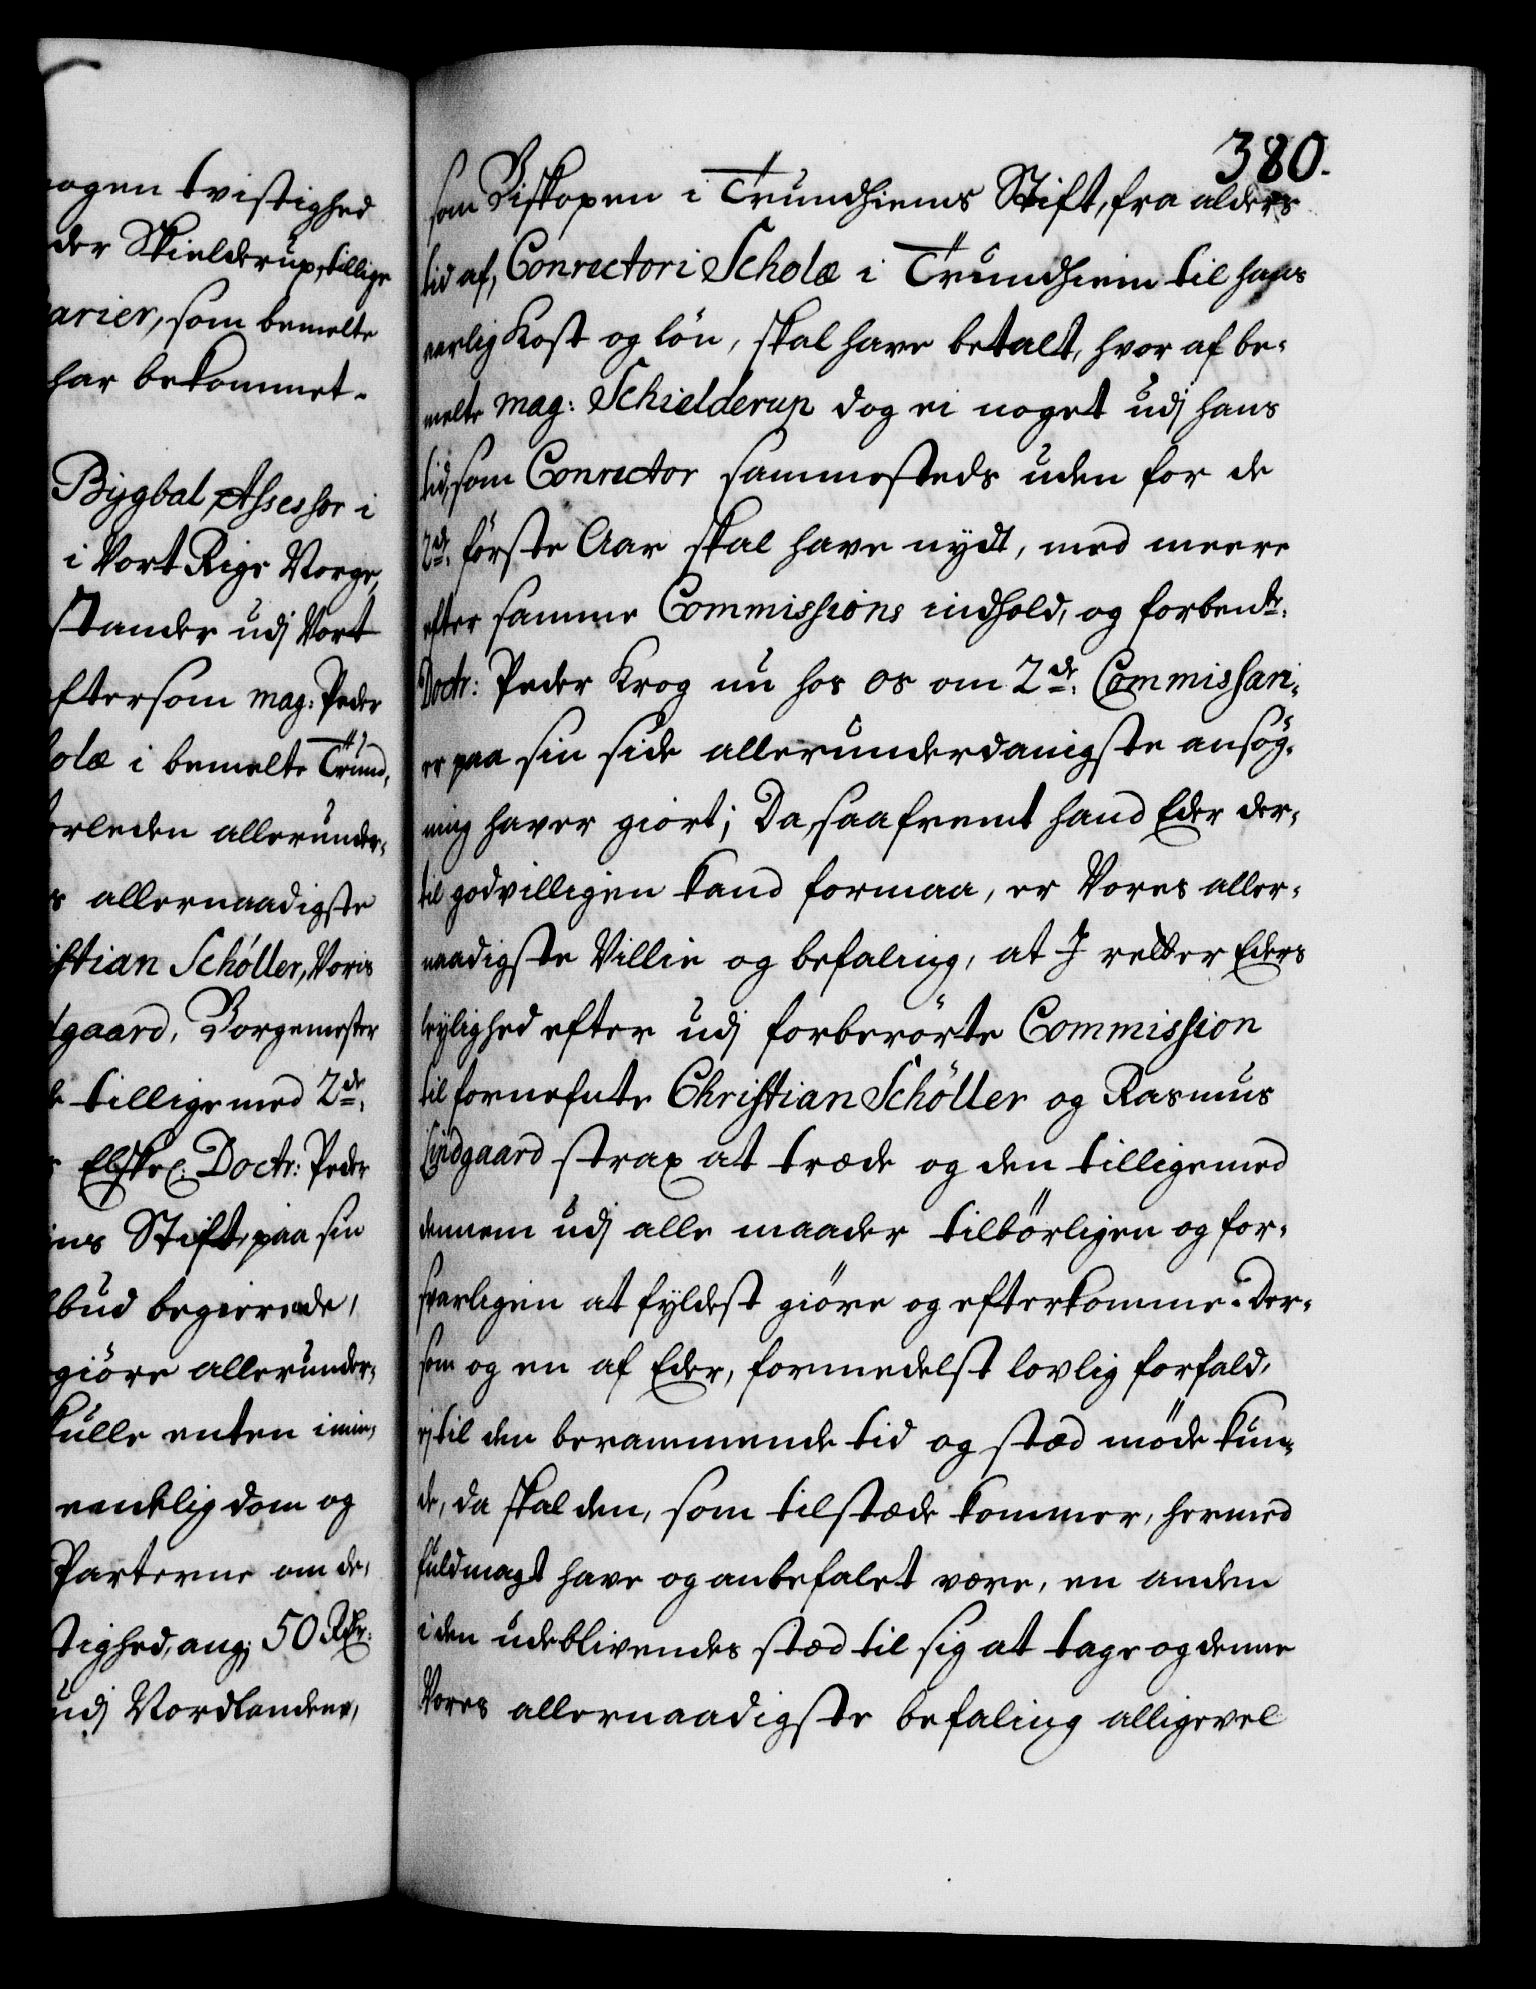 ogen tvistighed
der Skielderup, tillige
arier, som bemelte
har bekommet.
Bygbal, Assessor i
i Vort Rige Norge,
stander udj Vort
ftersom mag: Peder
olæ i bemelte Trund,
rleden allerunder,
s allernaadigste
istian Schöller, Voris
gaard, Borgemester
tillige med 2de,
Elskel: Doctr: Peder
ins Stift, paa sin
bud begierende,
giöre allerunder,
kulle enten i min,
endelig dom og
Parterne om de,
tighed, ang: 50 Rdr:
udj Nordlandene,
380.
som Biskopen i Trundhiems Stift, fra alders
tid af, Conrectori Scholæ i Trundhiem til hans
aarlig Kost og lön, skal have betalt, hvor af be-
melte mag: Schielderup dog ei noget udj hans
tid, som Conrector sammesteds uden for de
2de. förste Aar skal have nydt, med meere
efter samme Commissions indhold, og forbente.
Doctr: Peder Krog nu hos os om 2de. Commissari-
er paa sin side allerunderdanigste ansög-
ning haver giort; Da, saafremt hand Eder der-
til godvilligen kand formaa, er Vores aller-
naadigste Villie og befaling, at I retter Eders
leylighed efter udj forberörte Commission
til fornefnte Christian Schöller og Rasmus
Lyndgaard strax at træde og den tilligemed
dennem udj alle maader tilbörligen og for-
svarligen at fyldest giöre og efterkomme. Der-
som og en af Eder, formedelst lovlig forfald,
ej til den berammende tid og stæd möde kun-
de, da skal den, som tilstæde kommer, hermed
fuldmagt have og anbefalet være, en anden
i den udeblivendes stæd til sig at tage og denne
Vores allernaadigste befaling alligevel